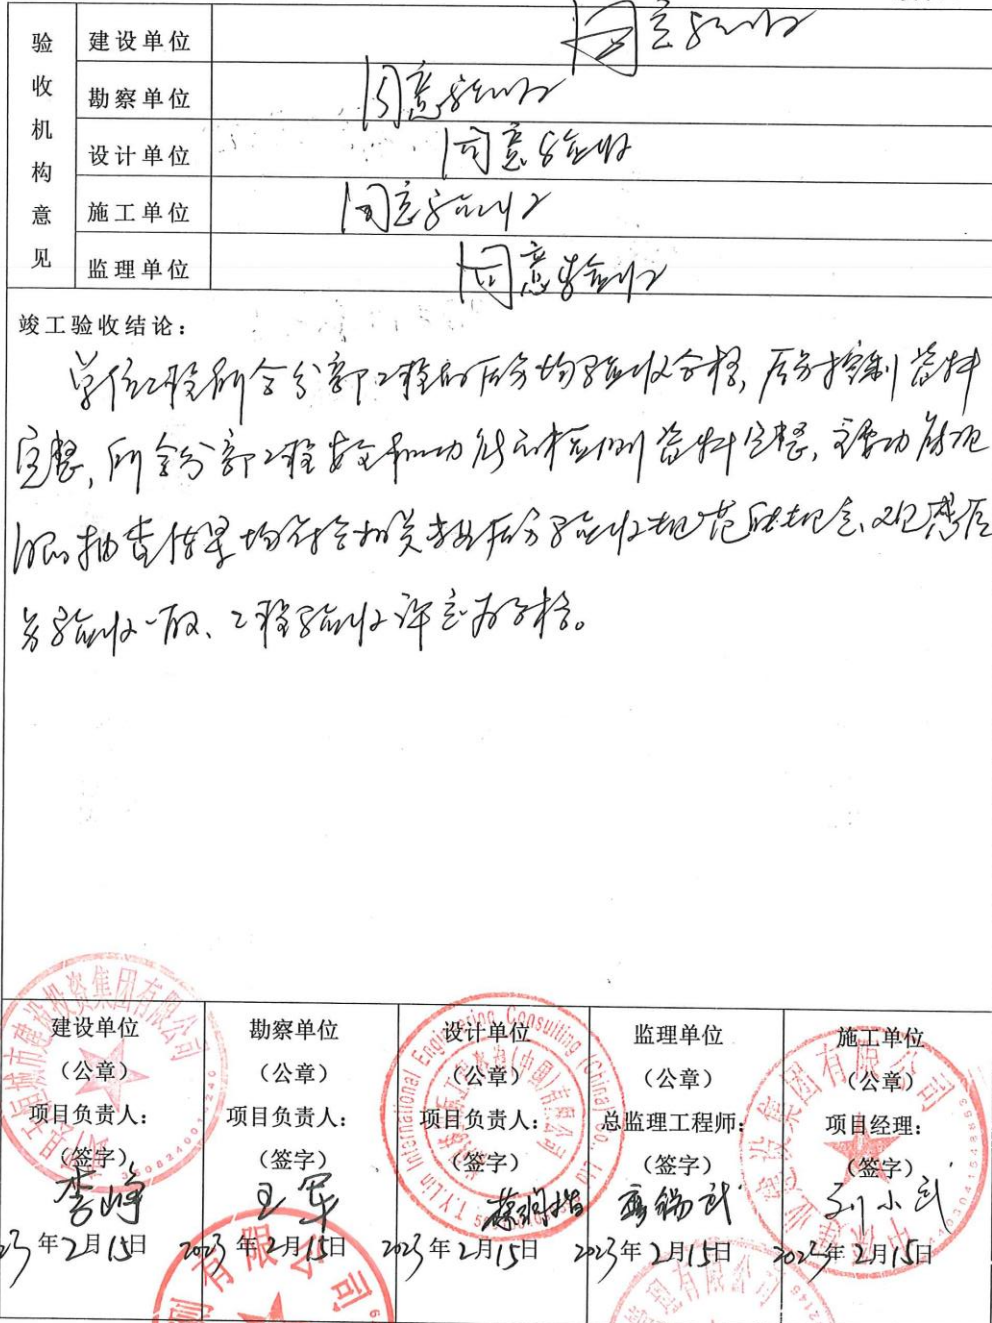 验收机构意见
建设单位 同意验收
勘察单位 同意验收
设计单位 同意验收
施工单位 同意验收
监理单位 同意验收
竣工验收结论：
单位工程所含分部工程的质量均验收合格，质量控制资料
完整，所含分部工程安全和功能的检测资料完整，主要功能项
目的抽查结果均符合相关专业质量验收规范的规定、观感质
量验收一般、工程验收评定为合格。
建设单位 勘察单位 设计单位 监理单位 施工单位
（公章） （公章） （公章） （公章） （公章）
项目负责人： 项目负责人： 项目负责人： 总监理工程师： 项目经理：
（签字） （签字） （签字） （签字） （签字）
李峥 王军 刘小武
23年2月15日 2023年2月15日 2023年2月15日 2023年2月15日 2023年2月15日
市建设投资集团有限公司
T.Y.Lin International Engineering Consulting (China) Co., Ltd
建设集团有限公司
有限公司
集团有限公司